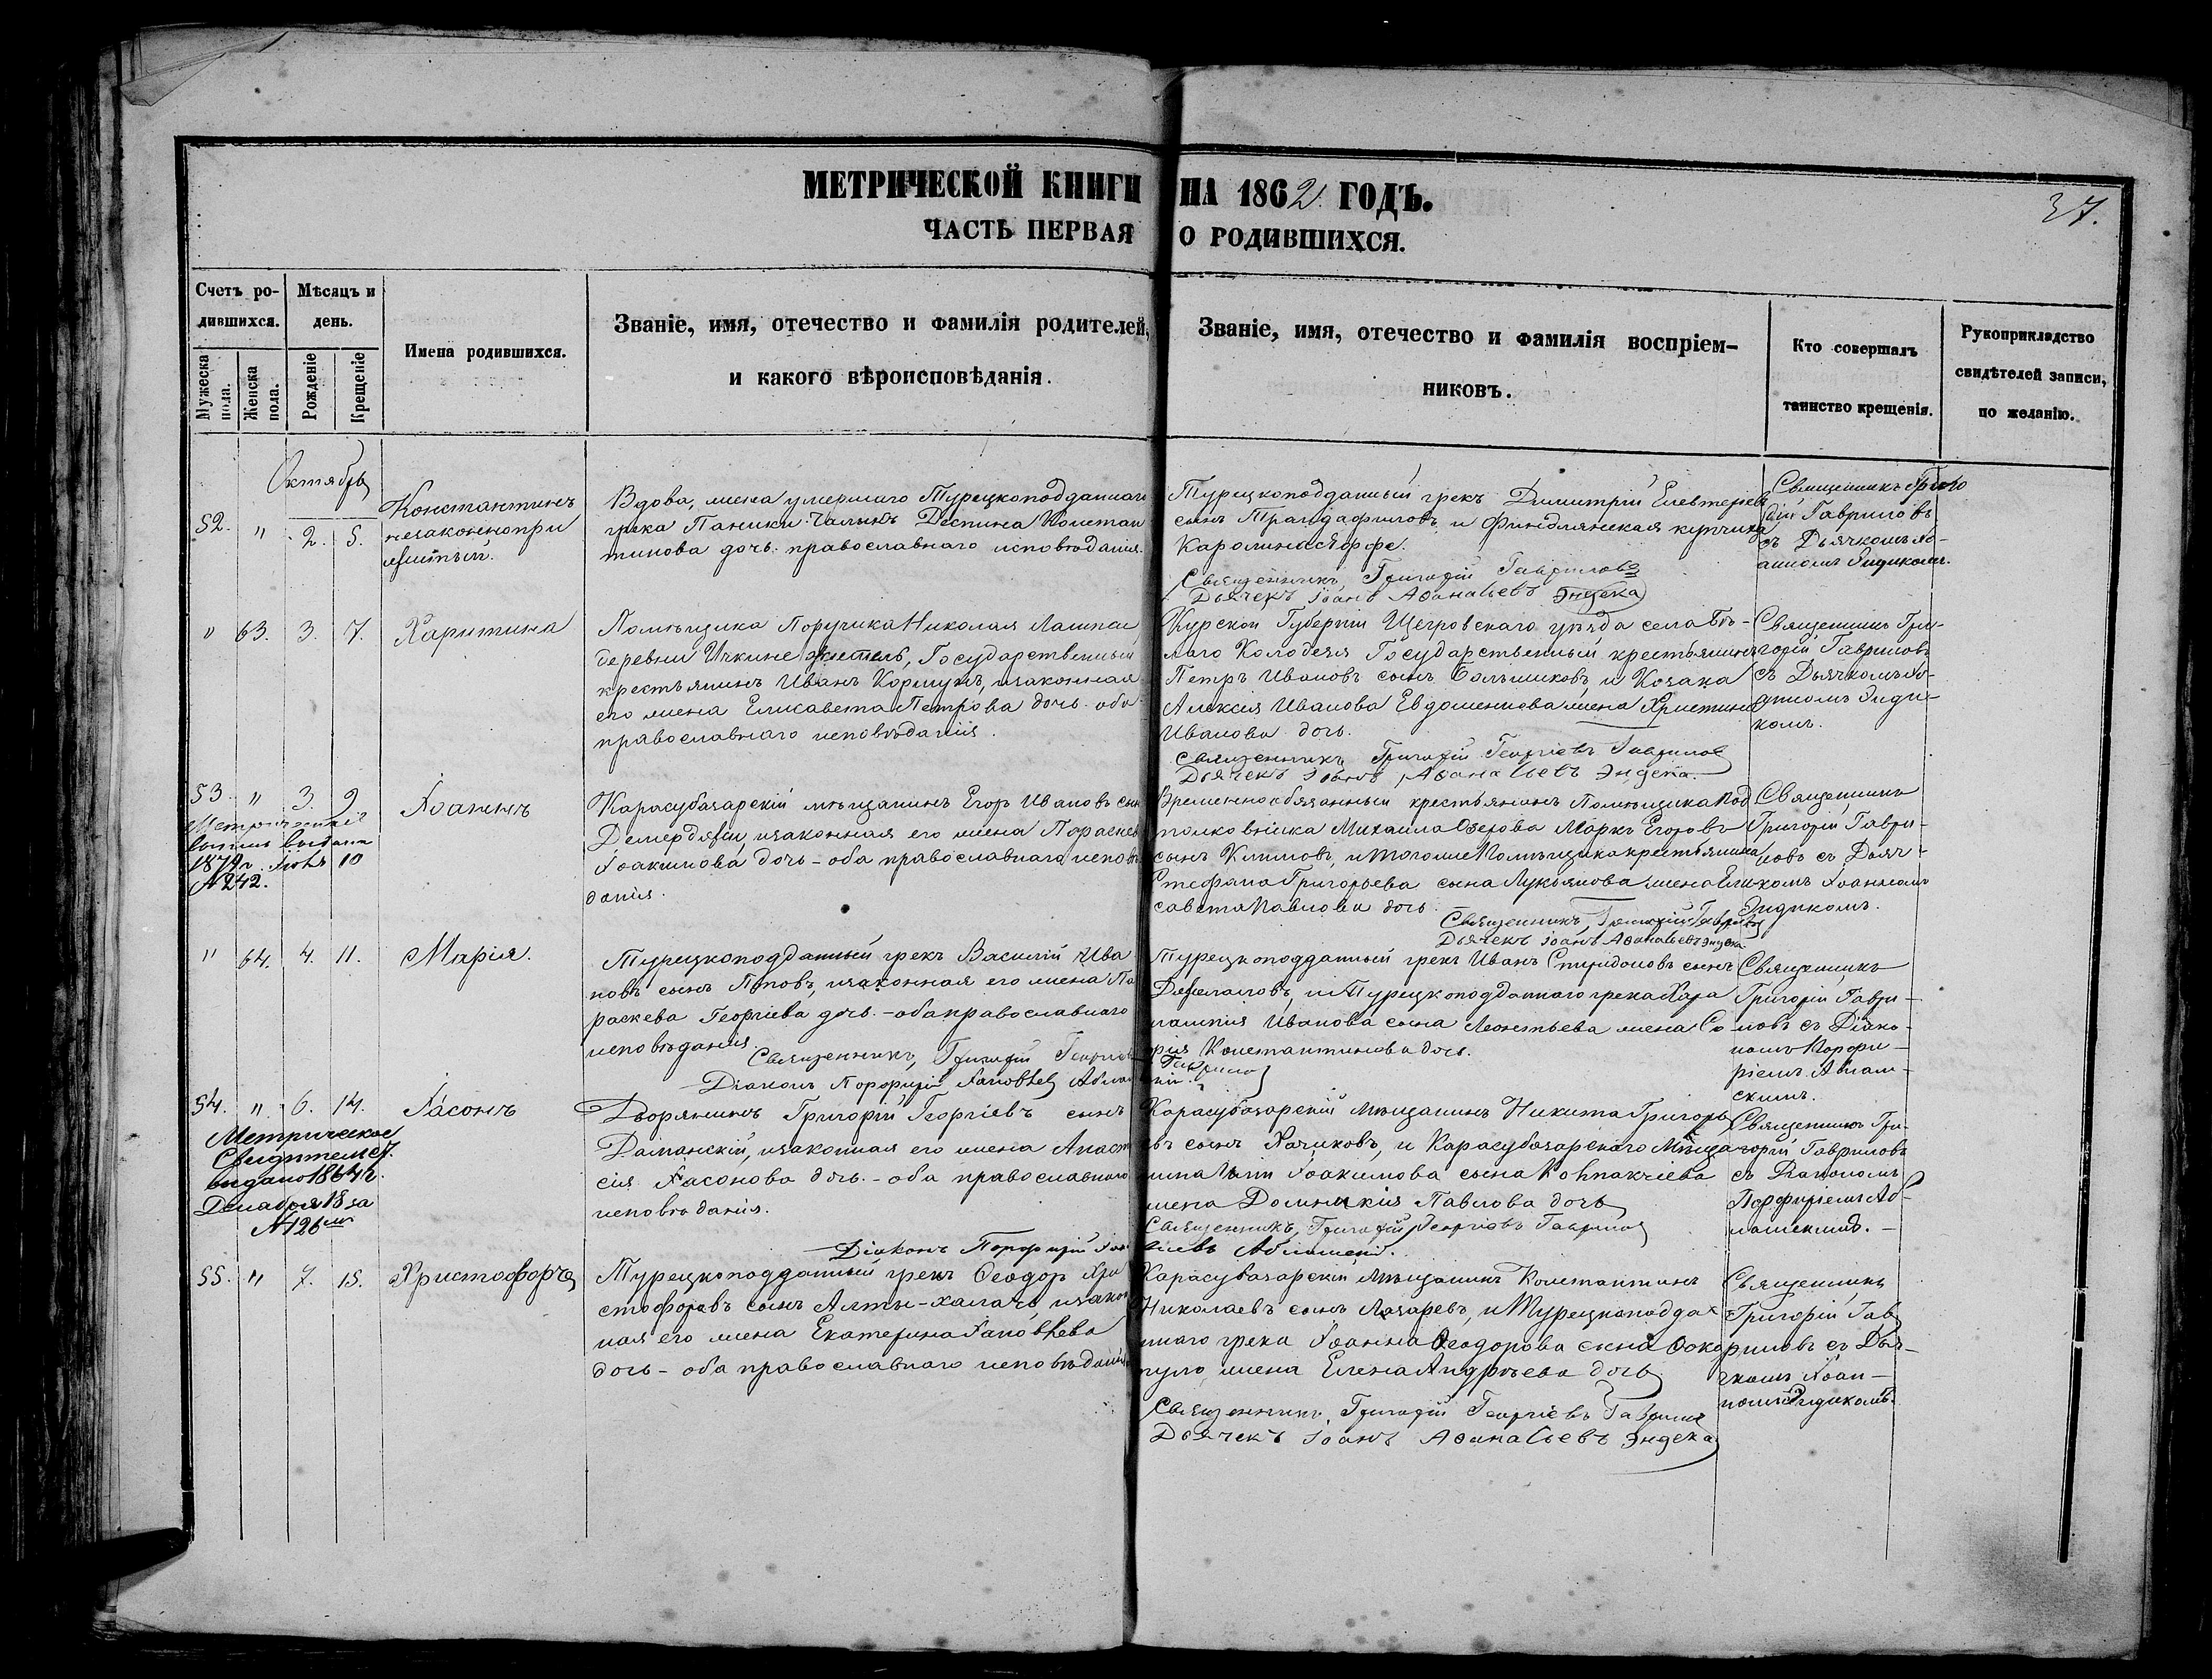 МЕТРИЧЕСКОЙ КНИГИ НА 1862 ГОДЪ.
37.
ЧАСТЬ ПЕРВАЯ О РОДИВШИХСЯ.
Счетъ ро-
дившихся.
Мужеска пола.
Женска пола.
Мѣсяцъ и
день.
Рожденіе
Крещеніе
Имена родившихся.
Званіе, имя, отечество и фамилія родителей,
и какого вѣроисповѣданія.
Званіе, имя, отечество и фамилія воспріем-
никовъ.
Кто совершалъ
таинство крещенія.
Рукоприкладство
свидѣтелей записи,
по желанію.
Октябрь
52. " 2. 5.
Константинъ
незаконнопри
житый.
Вдова, жена умершаго Турецкоподданнаго
грека Паники Деспина Констан
тинова дочь. православнаго исповѣданія.
Турецкоподданный грекъ Димитрій Елевтеріевъ
сынъ Трандафиловъ и Финдлянская купчиха
Каролина Яффе.
Священникъ, Григорій Гавриловъ
Дьячекъ Іоанъ Афанасьевъ Эндека
Священникъ Григо
рій Гавриловъ
съ Дьячкомъ Іо-
анномъ Эндикомъ.
" 63. 3. 7.
Харитина
Помѣщика Поручика Николая
деревни Ичкине житель, Государственный
крестьянинъ Иванъ Коршунъ, изаконная
его жена Елисавета Петрова дочь. оба
православнаго исповѣданія.
Курской Губерніи Щегровскаго уѣзда села Бѣ-
лаго Колодезя Государственный крестьянинъ
Петръ Ивановъ сынъ Большиковъ, и Козака
Алексія Иванова Евдошенкова жена Христина
Иванова дочь.
Священникъ Григорій Георгіевъ Гавриловъ
Дьячекъ Іоанъ, Афанасьевъ Эндека.
Священникъ Гри-
горій Гавриловъ
съ Дьячкомъ Іо-
анномъ Энди-
комъ.
53. " 3. 9.
Метрическая
выпись выдана
1879 г. Іюня 10
№ 242.
Іоаннъ
Карасубазарскій мѣщанинъ Егоръ Ивановъ сынъ
Демерджи, изаконная его жена Параскева
Іоакимова дочь - оба православнаго исповѣ
данія.
Временнообязанный крестьянинъ Помѣщика Под
полковника Михаила Озерова Маркъ Егоровъ
сынъ Климовъ, и тогоже Помѣщика крестьянина
Стефана Григорьева сына Лукоянова жена Ели
савета Павлова дочь.
Священникъ, Григорій Гавриловъ
Дьячекъ Іоанъ Афанасьевъ Эндека
Священникъ
Григорій Гаври-
ловъ съ Дьяч-
комъ Іоанномъ
Эндикомъ.
" 64. 4. 11.
Марія.
Турецкоподданный грекъ Василій Ива
новъ сынъ Поповъ, изаконная его жена Па
раскева Георгіева дочь. - оба православнаго
исповѣданія.
Священникъ, Григорій Георгіевъ Гавриловъ
Діаконъ Порфирій Іаковлевъ
Турецкоподданный грекъ Иванъ Спиридоновъ сынъ
и Турецкоподданнаго грека Хара
лампія Иванова сына Леонтьева жена Со
фія Константинова дочь.
Священникъ
Григорій Гаври-
ловъ съ Діако-
номъ Порфи-
ріемъ Аблам-
скимъ.
54. " 6. 14.
Метрическое
Свидѣтельст.
выдано 1864 г.
Декабря 18 за
№ 126
Іасонъ
Дворянинъ Григорій Георгіевъ сынъ
Даманскій, изаконная его жена Анаста
сія Іасонова дочь. - оба православнаго
исповѣданія.
Карасубазарскій Мѣщанинъ Никита Григорь
евъ сынъ Хачиковъ, и Карасубазарскаго Мѣща
нина Іоакимова сына
жена Домникія Павлова дочь
Священникъ, Григорій Георгіевъ Гавриловъ
Діаконъ Порфирій
Священникъ Гри-
горій Гавриловъ
съ Діакономъ
Порфиріемъ Аб-
ламскимъ.
55. " 7. 15.
Христофоръ
Турецкоподданный грекъ Ѳеодоръ Хри
стофоровъ сынъ Алты-халачъ, изакон
ная его жена Екатерина Іаковлева
дочь - оба православнаго исповѣданія
Карасубазарскій Мѣщанинъ Константинъ
Николаевъ сынъ Лазаревъ, и Турецкоподда
ннаго грека Іоанна Ѳеодорова сына
жена Елена Андреева дочь
Священникъ, Григорій Георгіевъ Гавриловъ
Дьячекъ Іоанъ Афанасьевъ Эндека
Священникъ
Григорій Гав
риловъ съ Дья-
чкомъ Іоан-
номъ Эндикомъ.